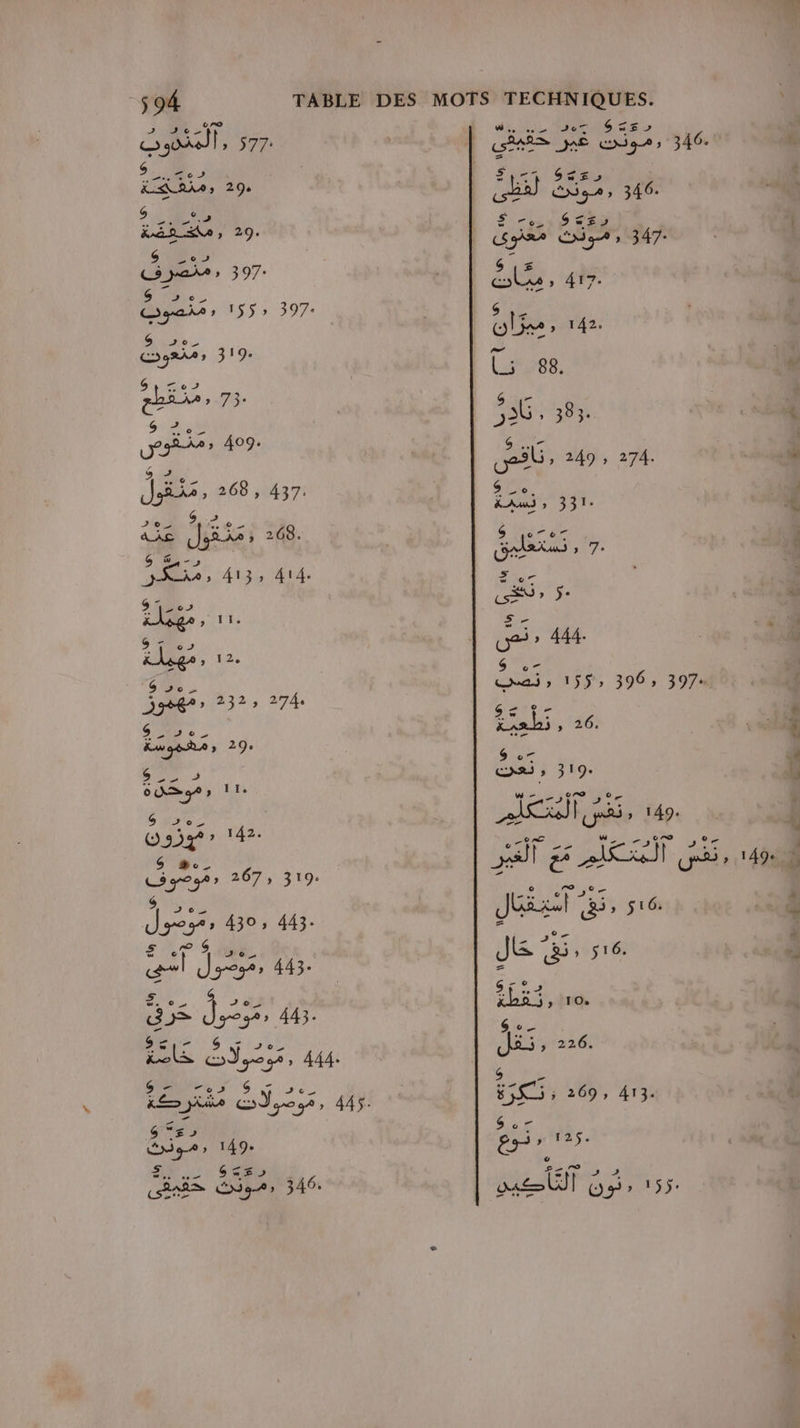 594 TABLE DES MOTS TECHNIQUES.
اَلْمَنْدُوبُ, 577.
مُنْفَكَّةٌ, 29.
مُنْخَفِضَةٌ, 29.
مُنْصَرِفٌ, 397.
مَنْصُوبٌ, 155, 397.
مَنْعُوتٌ, 319.
مُنْقَطِعٌ, 73.
مَنْقُوصٌ, 409.
مَنْقُولٌ, 268, 437.
مَنْقُولٌ عَنْهُ, 268.
مُنَكَّرٌ, 413, 414.
مُهْمَلَةٌ, 11.
مُهْمَلَةٌ, 12.
مَهْمُوزٌ, 232, 274.
مَهْمُوسَةٌ, 29.
مُوَحَّدَةٌ, 11.
مَوْزُونٌ, 142.
مَوْصُوفٌ, 267, 319.
مَوْصُولٌ, 430, 443.
مَوْصُولٌ ٱسْمِىٌّ, 443.
مَوْصُولٌ حَرْفِىٌّ, 443.
مَوْصُولَاتٌ خَاصَّةٌ, 444.
مَوْصُولَاتٌ مُشْتَرَكَةٌ, 445.
مُؤَنَّثٌ, 149.
مُؤَنَّثٌ حَقِيقِىٌّ, 346.
مُؤَنَّثٌ غَيْرُ حَقِيقِىٍّ, 346.
مُؤَنَّثٌ لَفْظِىٌّ, 346.
مُؤَنَّثٌ مَعْنَوِىٌّ, 347.
مِيَّاتٌ, 417.
مِيزَانٌ, 142.
نَا 88.
نَادِرٌ, 383.
نَاقِصٌ, 249, 274.
نِسْبَةٌ, 331.
نَسْتَعْلِيقٌ, 7.
نَسْخِىٌّ, 5.
نَصٌّ, 444.
نَصْبٌ, 155, 396, 397.
نَطْعِيَّةٌ, 26.
نَعْتٌ, 319.
نَفْسُ ٱلْمُتَكَلِّمِ, 149.
نَفْسُ ٱلْمُتَكَلِّمِ مَعَ ٱلْغَيْرِ, 149.
نَفْىُ ٱسْتِقْبَالٍ, 516.
نَفْىُ حَالٍ, 516.
نُقْطَةٌ, 10.
نَقْلٌ, 226.
نَكِرَةٌ, 269, 413.
نَوْعٌ, 125.
نُونُ ٱلتَّأْكِيدِ, 155.